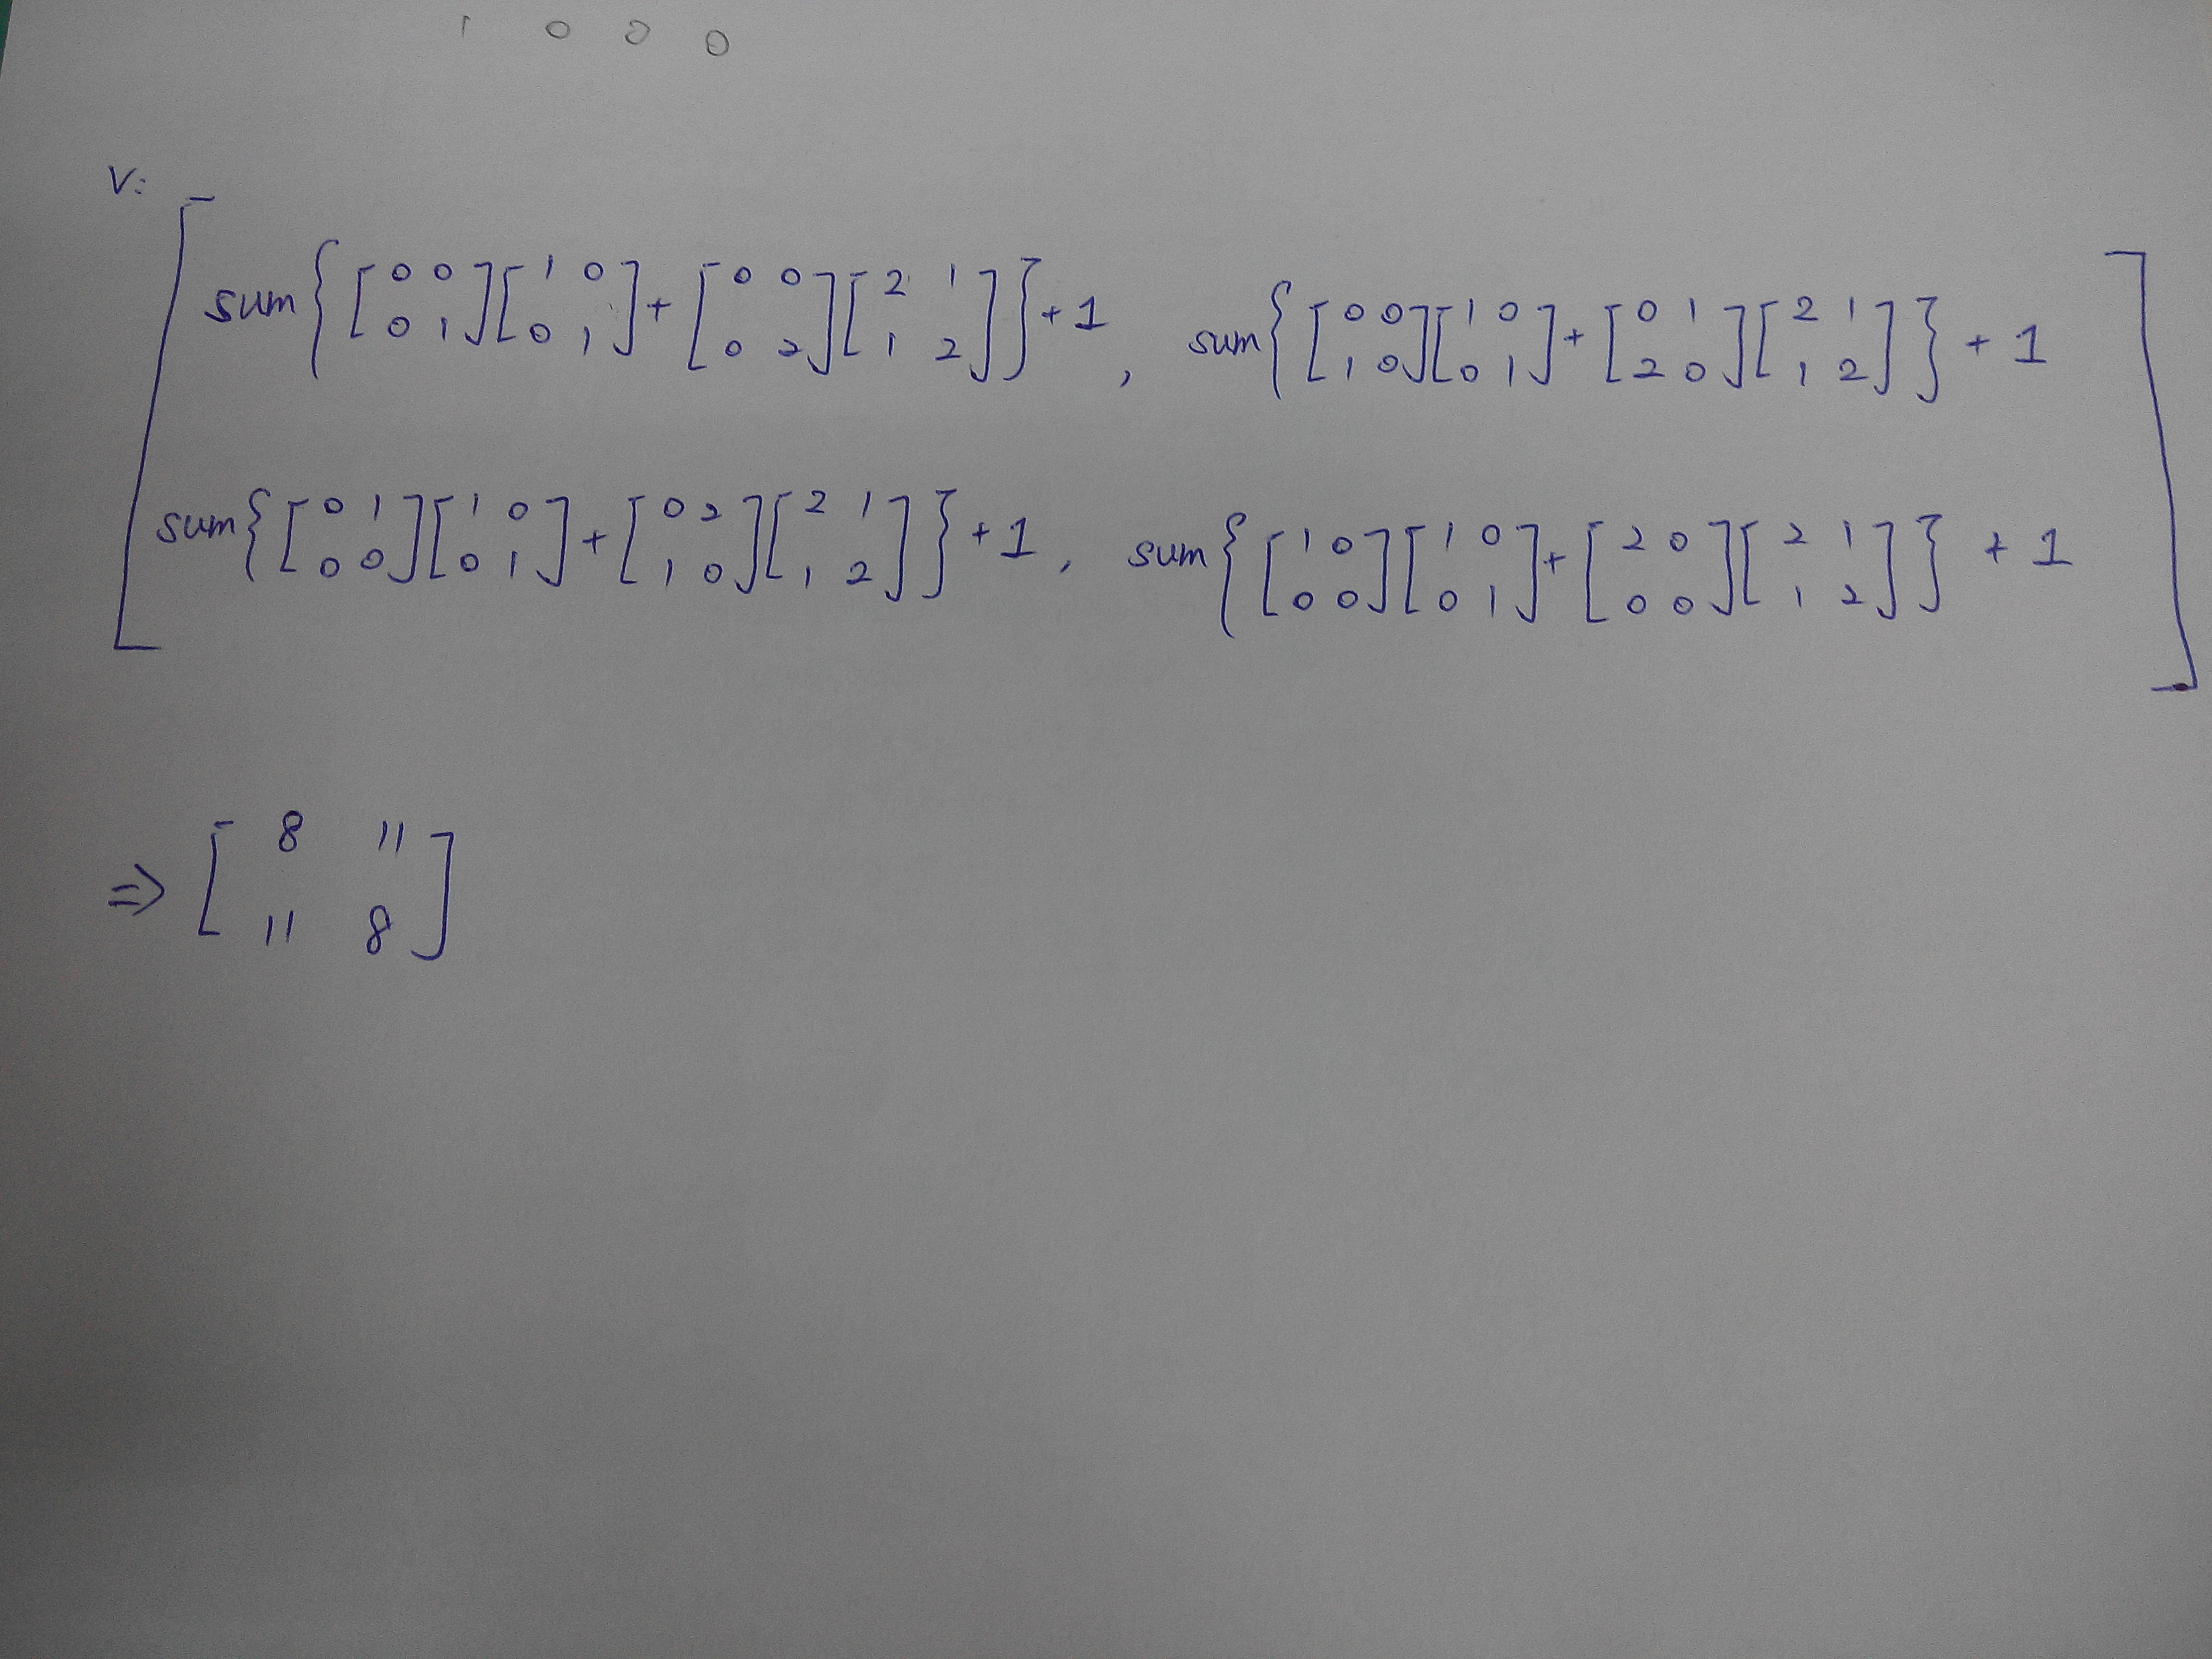 1 0 0 0
V:
[ sum{ [0 0; 0 1] [1 0; 0 1] + [0 0; 0 2] [2 1; 1 2] } + 1 , sum{ [0 0; 1 0] [1 0; 0 1] + [0 1; 2 0] [2 1; 1 2] } + 1
sum{ [0 1; 0 0] [1 0; 0 1] + [0 2; 1 0] [2 1; 1 2] } + 1 , sum{ [1 0; 0 0] [1 0; 0 1] + [2 0; 0 0] [2 1; 1 2] } + 1 ]
=> [ 8 11
11 8 ]